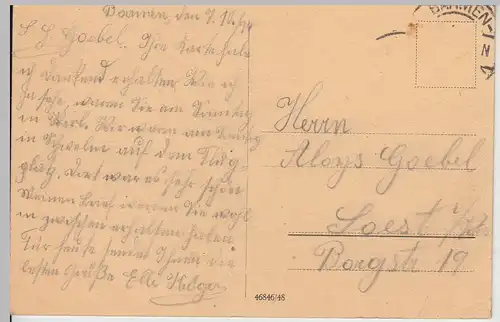 Barmen, den 9.10.
L. H. Goebel. Ihre Karte habe
ich dankend erhalten. Wie ich
ja sehe, waren Sie am Sonntag
in Werl. Wir waren am Sonntag
in Schwelm auf dem Flug-
platz. Dort war es sehr schön
Meinen Brief werden Sie wohl
inzwischen erhalten haben.
Für heute sendet Ihnen die
besten Grüße Elli
BARMEN
Herrn
Aloys Goebel
Soest i/W.
Borgstr 19
46846/48